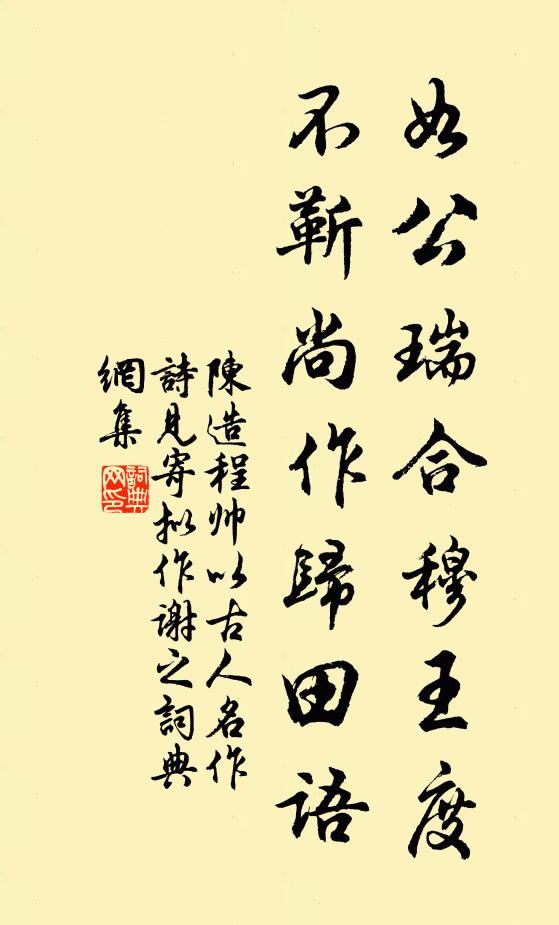 如公瑞合穆王度
不蕲尚作歸田語
陳造程帅以古人名作
詩見寄拟作谢之詞典
網集
詞典
网印